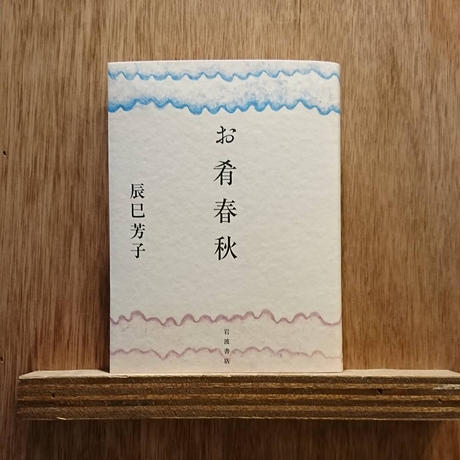 お肴春秋
辰巳芳子
岩波書店